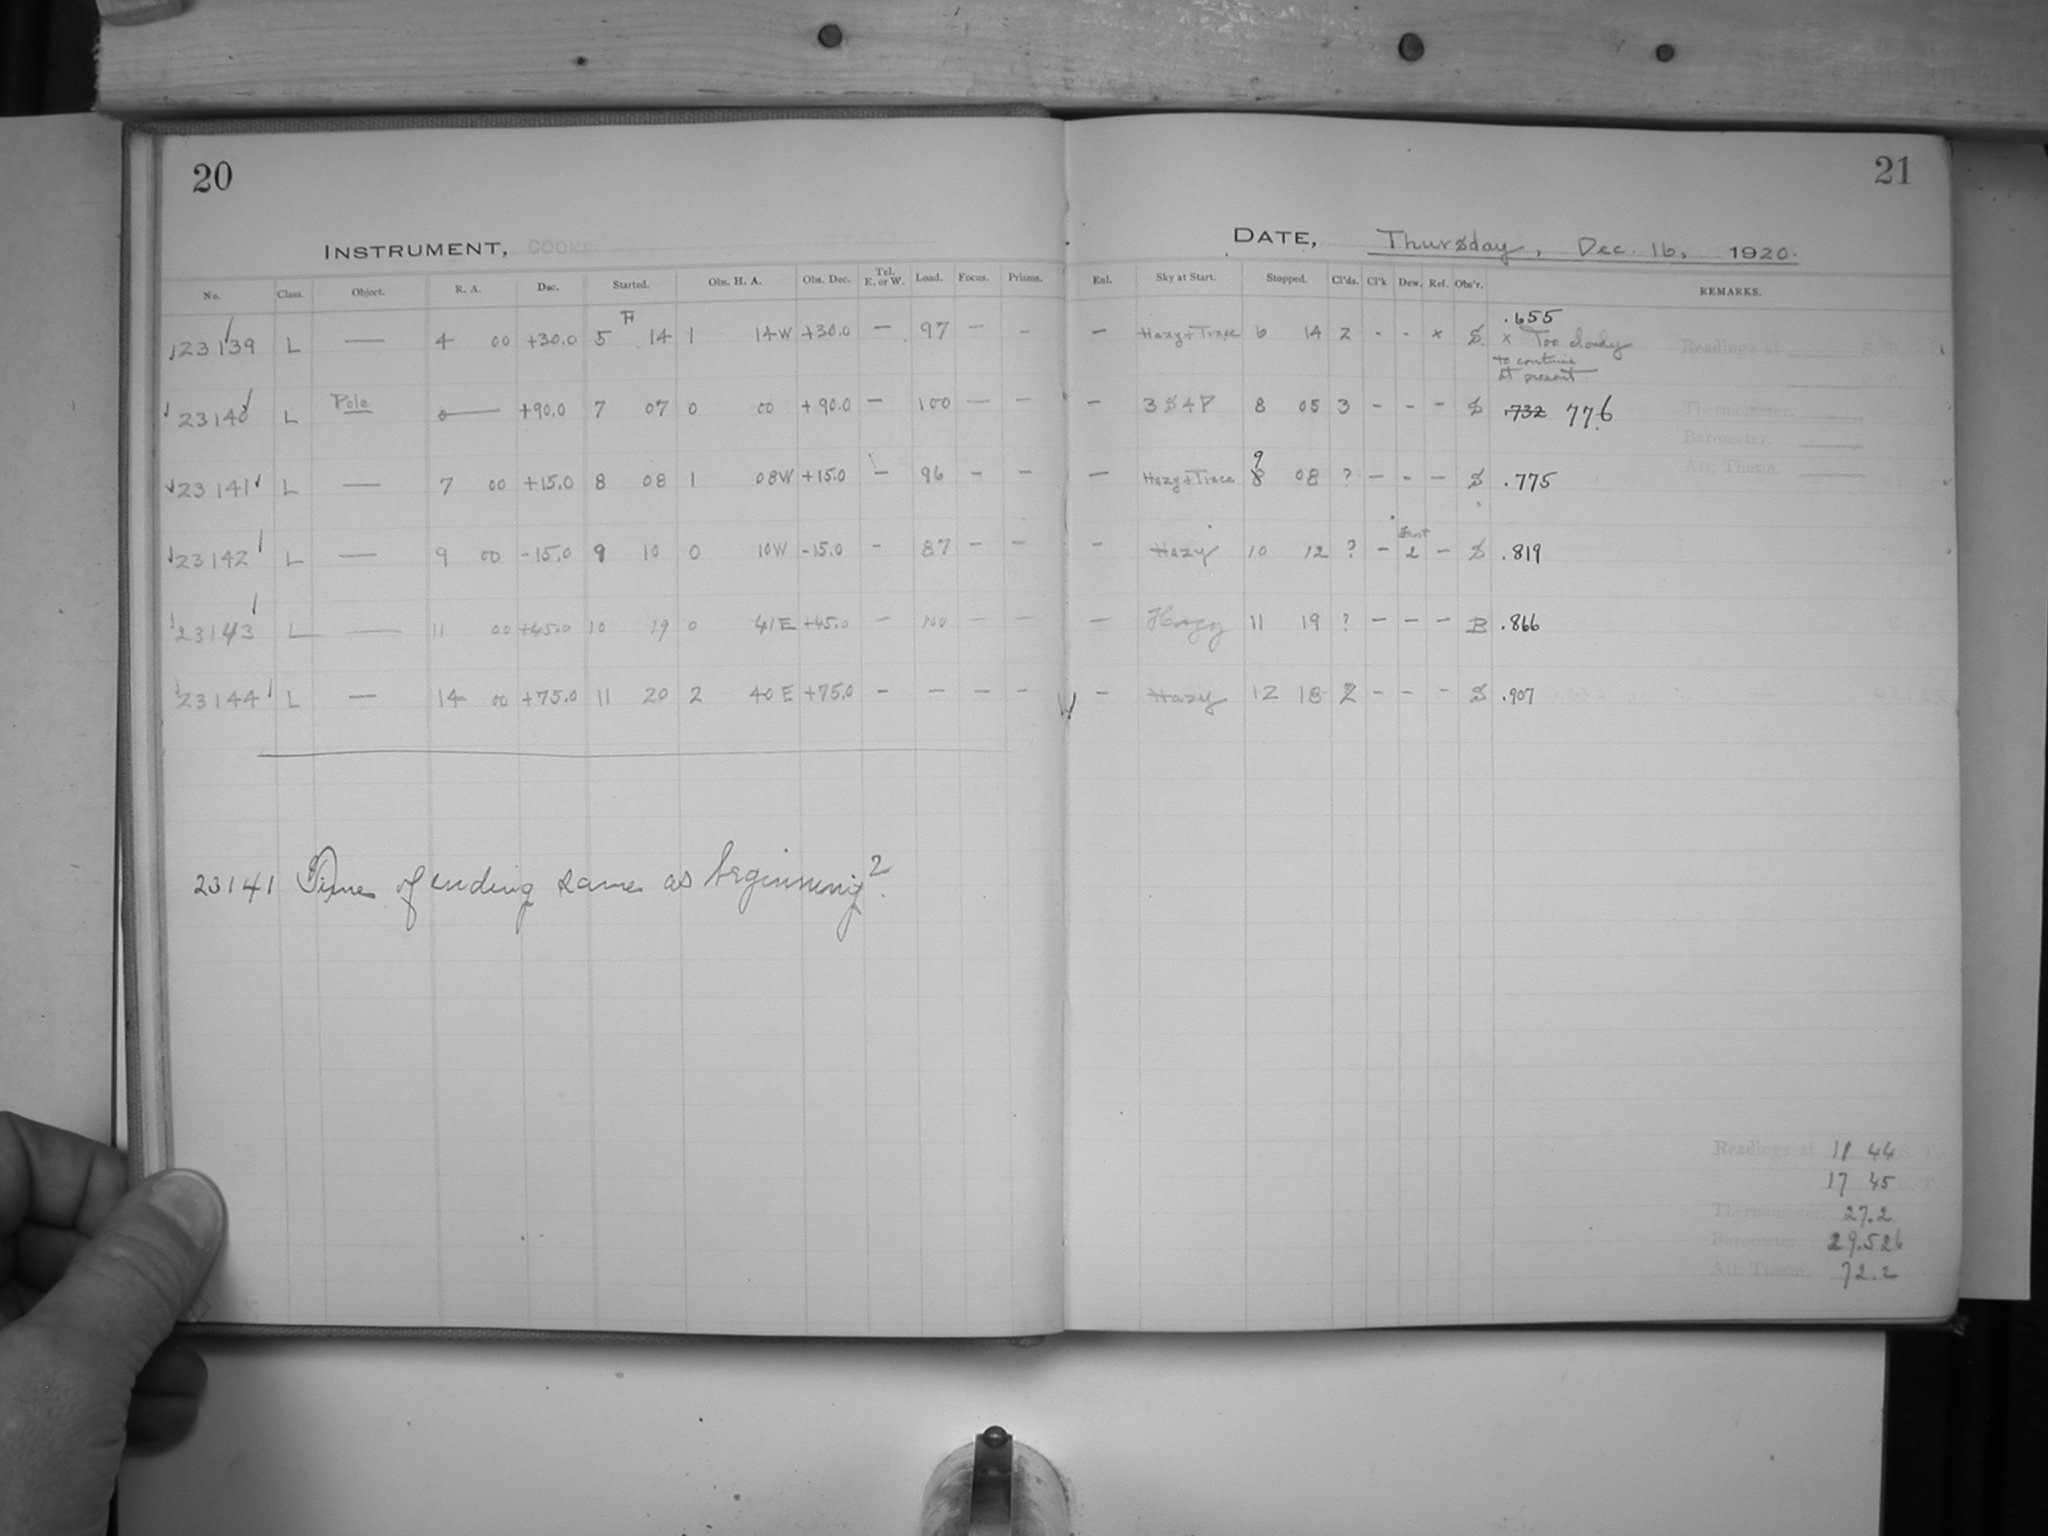 20
21
INSTRUMENT, COOKE
DATE, Thursday, Dec. 16, 1920.
No. Class. Object. R. A. Dec. Started. Obs. H. A. Obs. Dec. Tel. E. or W. Load. Focus. Prisms. Enl. Sky at Start. Stopped. Cl'ds. Cl'k Dew. Ref. Obs'r. REMARKS.
.655
23139 L — 4 00 +30.0 5 14 1 14W +30.0 — 97 — — — Hazy+Trace 6 14 2 - - x S. x Too cloudy
to continue
at present.
23140 L Pole 0 — +90.0 7 07 0 00 +90.0 — 100 — — — 3 S 4 P 8 05 3 - - - S .732 776
9
23141 L — 7 00 +15.0 8 08 1 08W +15.0 — 96 — — — Hazy+Trace 8 08 ? — - — S .775
Frost
23142 L — 9 00 -15.0 9 10 0 10W -15.0 - 87 — — — Hazy 10 12 ? - 2 - S .819
23143 L — 11 00 +45.0 10 19 0 41E +45.0 — 100 — — — Hazy 11 19 ? - - - B .866
23144 L — 14 00 +75.0 11 20 2 40 E +75.0 - - - - - Hazy 12 18 2 - - - S .907
23141 Time of ending same as beginning?
Readings at
Thermometer.
Barometer.
Att. Therm.
Readings at 11 44 S. T.
17 45
Thermometer. 27.2
Barometer. 29.526
Att. Therm. 72.2